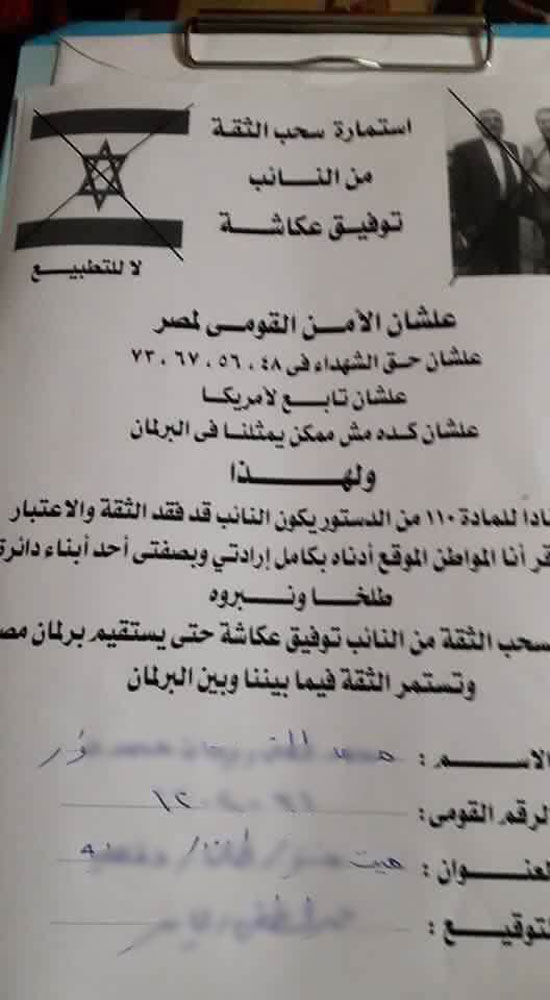 استمارة سحب الثقة
من النـــائب
توفيق عكاشـــة
لا للتطبيـــع
علشان الأمـن القومى لمصر
علشان حـق الشهداء فى ٤٨ ، ٥٦ ، ٦٧ ، ٧٣
علشان تابـــع لأمريكـا
علشان كـده مش ممكن يمثلنـا فى البرلمان
ولهـــــذا
ادا للمادة ١١٠ من الدستور يكون النائب قد فقد الثقة والاعتبار
قر أنا المواطن الموقع أدناه بكامل إرادتي وبصفتى أحد أبناء دائرة
طلخـــا ونـــبروه
سحب الثقة من النائب توفيق عكاشة حتى يستقيم برلمان مصـ
وتستمر الثقة فيما بيننا وبين البرلمان
الاســـــم : محمد
لرقم القومى : ١٢
لعنـــوان : ميت
لتوقيـــع :